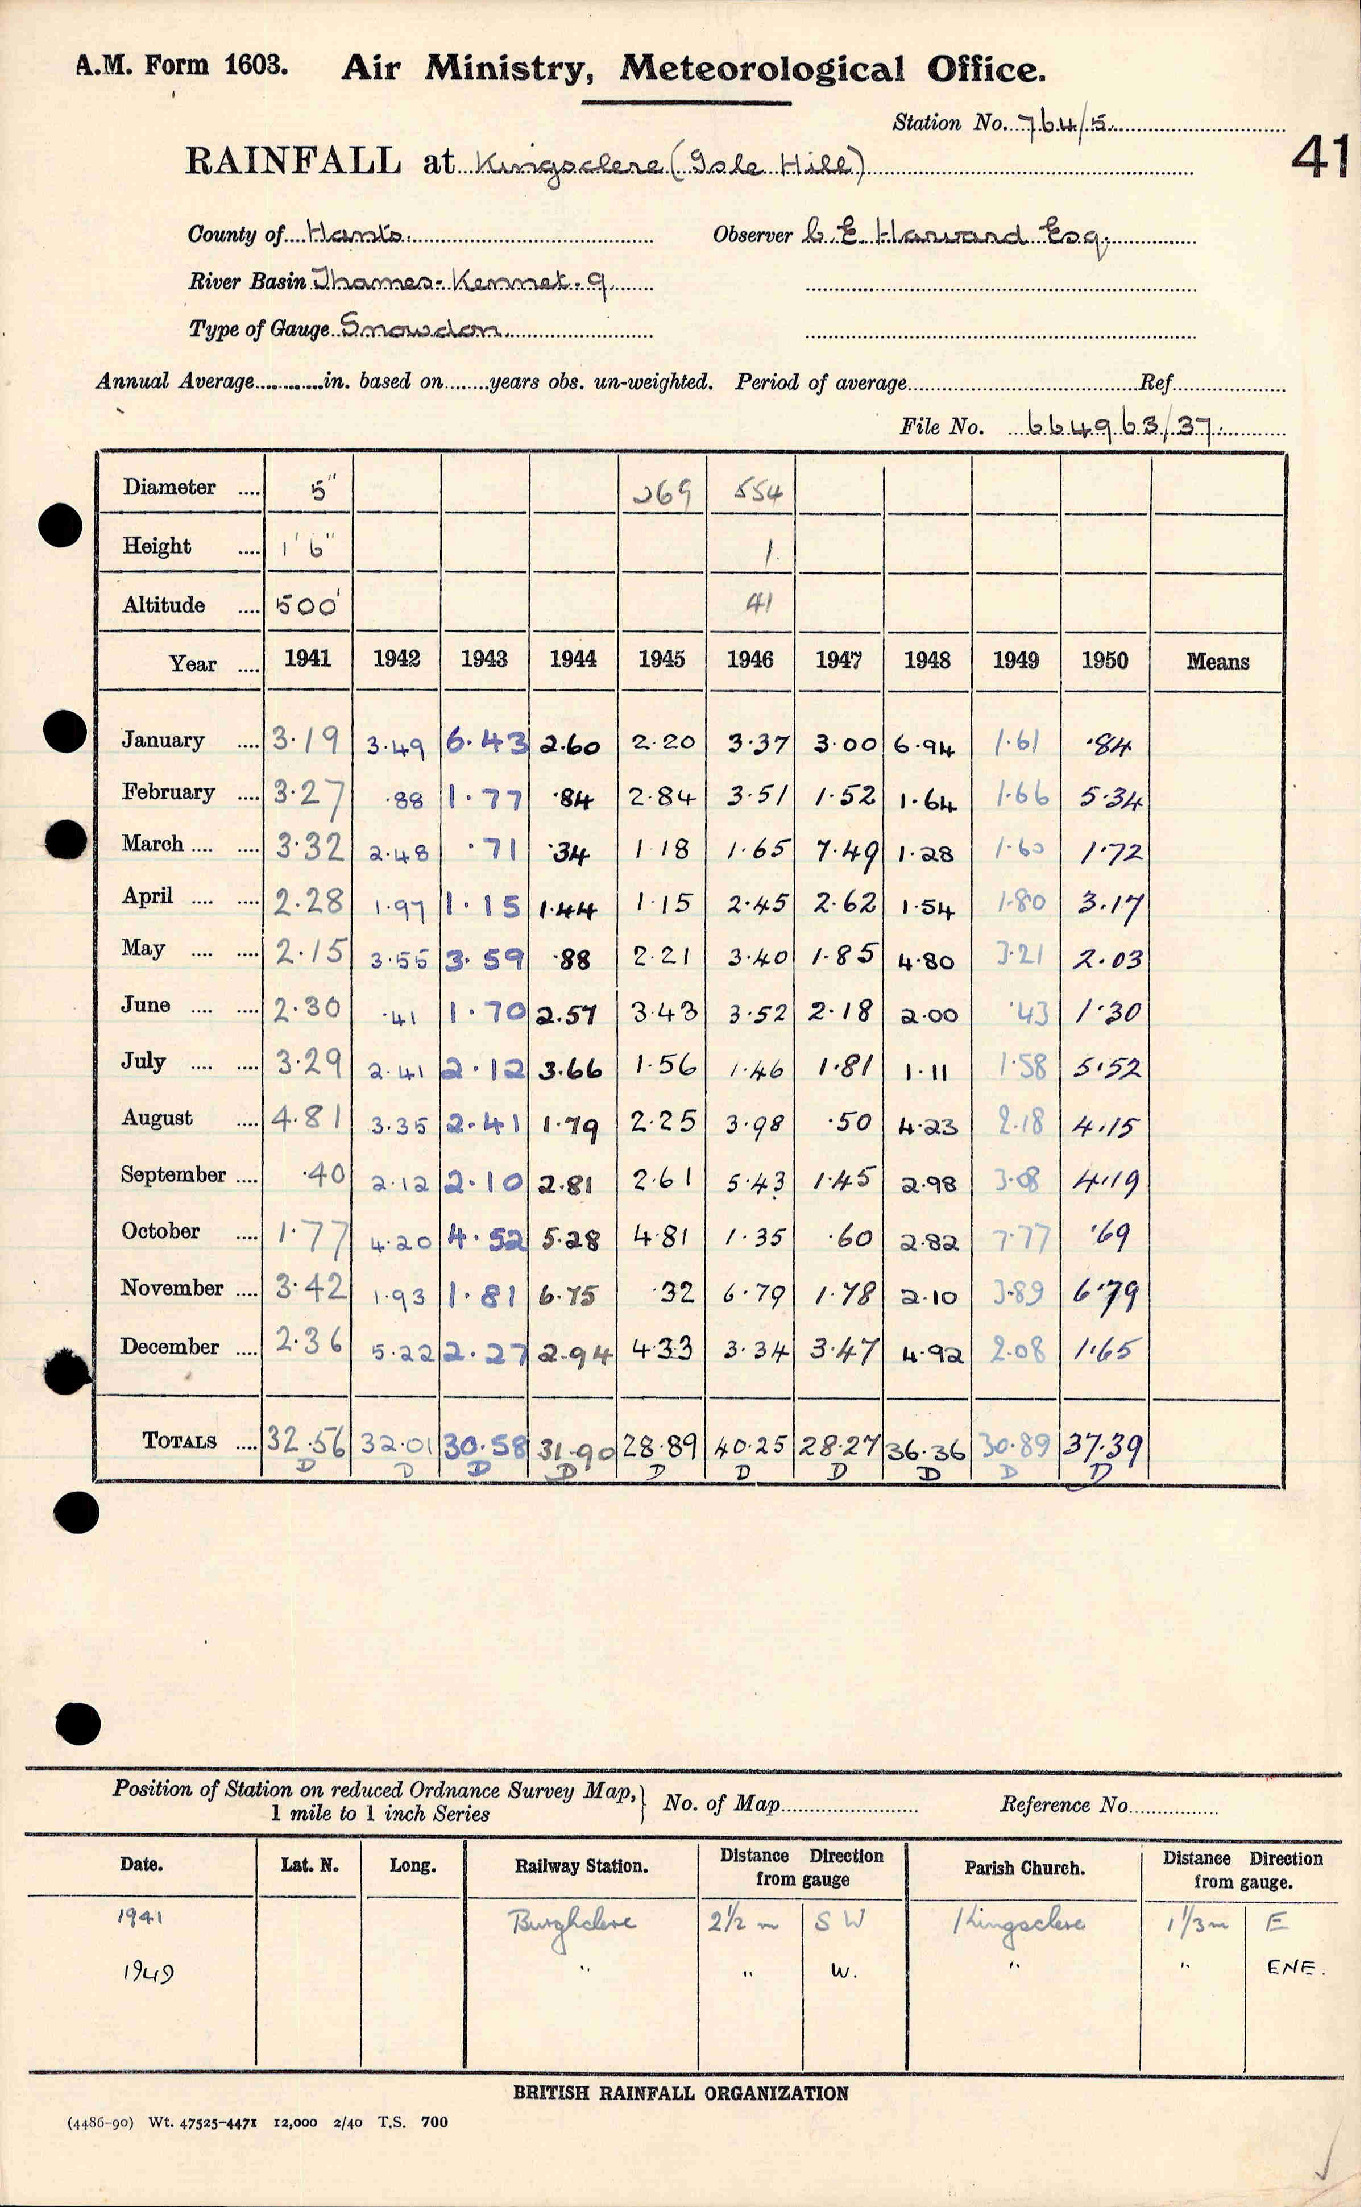 A.M. Form 1603. Air Ministry, Meteorological Office.
Station No. 764/5
41
RAINFALL at Kingsclere (Isle Hill)
County of Hants. Observer C. E. Harward Esq.
River Basin Thames-Kennet. 9
Type of Gauge Snowdon
Annual Average in. based on years obs. un-weighted. Period of average Ref
File No. 664963/37
Diameter 5" 269 554
Height 1'6" 1
Altitude 500' 41
Year 1941 1942 1943 1944 1945 1946 1947 1948 1949 1950 Means
January 3.19 3.49 6.43 2.60 2.20 3.37 3.00 6.94 1.61 .84
February 3.27 .88 1.77 .84 2.84 3.51 1.52 1.64 1.66 5.34
March 3.32 2.48 .71 .34 1.18 1.65 7.49 1.28 1.60 1.72
April 2.28 1.97 1.15 1.44 1.15 2.45 2.62 1.54 1.80 3.17
May 2.15 3.55 3.59 .88 2.21 3.40 1.85 4.80 3.21 2.03
June 2.30 .41 1.70 2.57 3.43 3.52 2.18 2.00 .43 1.30
July 3.29 2.41 2.12 3.66 1.56 1.46 1.81 1.11 1.58 5.52
August 4.81 3.35 2.41 1.79 2.25 3.98 .50 4.23 2.18 4.15
September .40 2.12 2.10 2.81 2.61 5.43 1.45 2.98 3.08 4.19
October 1.77 4.20 4.52 5.28 4.81 1.35 .60 2.82 7.77 .69
November 3.42 1.93 1.81 6.75 .32 6.79 1.78 2.10 3.89 6.79
December 2.36 5.22 2.27 2.94 4.33 3.34 3.47 4.92 2.08 1.65
TOTALS 32.56 32.01 30.58 31.90 28.89 40.25 28.27 36.36 30.89 37.39
D D D D D D D D D D
Position of Station on reduced Ordnance Survey Map, 1 mile to 1 inch Series } No. of Map Reference No.
Date. Lat. N. Long. Railway Station. Distance Direction from gauge Parish Church. Distance Direction from gauge.
1941 Burghclere 2½ m SW Kingsclere 1⅓ m E
1949 " " W. " " ENE.
BRITISH RAINFALL ORGANIZATION
(4486-90) Wt. 47525-4471 12,000 2/40 T.S. 700